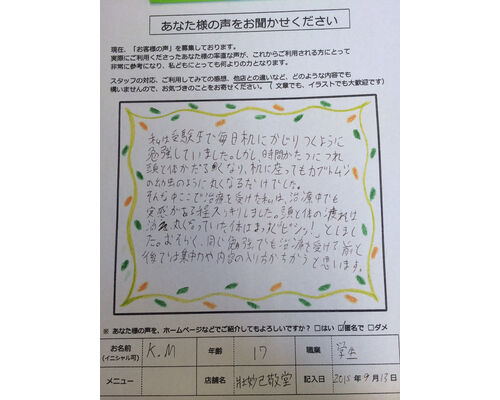 あなた様の声をお聞かせください
現在、「お客様の声」を募集しております。
実際にご利用くださったあなた様の率直な声が、これからご利用される方にとって
非常に参考になり、私どもにとっても何よりの力となります。
スタッフの対応、ご利用してみての感想、他店との違いなど、どのような内容でも
構いませんので、お気づきのことをお寄せください。（文章でも、イラストでも大歓迎です）
私は受験生で毎日机にかじりつくように
勉強していました。しかし、時間がたつにつれ
頭と体がだるくなり、机に座ってもカブトムシ
の幼虫のように丸くなるだけでした。
そんな中ここで治療を受けた私は、治療中でも
実感がある程スッキリしました。頭と体の疲れは
治り、丸くなっていた体はまっすぐピシッ！としまし
た。おそらく、同じ勉強でも治療を受けて前と
後では集中力や内容の入り方がちがうと思います。
※ あなた様の声を、ホームページなどでご紹介してもよろしいですか？ □はい ☑匿名で □ダメ
お名前 K.M 年齢 17 職業 学生
(イニシャル可)
メニュー 店舗名 壮妙己敬堂 記入日 2015年9月13日